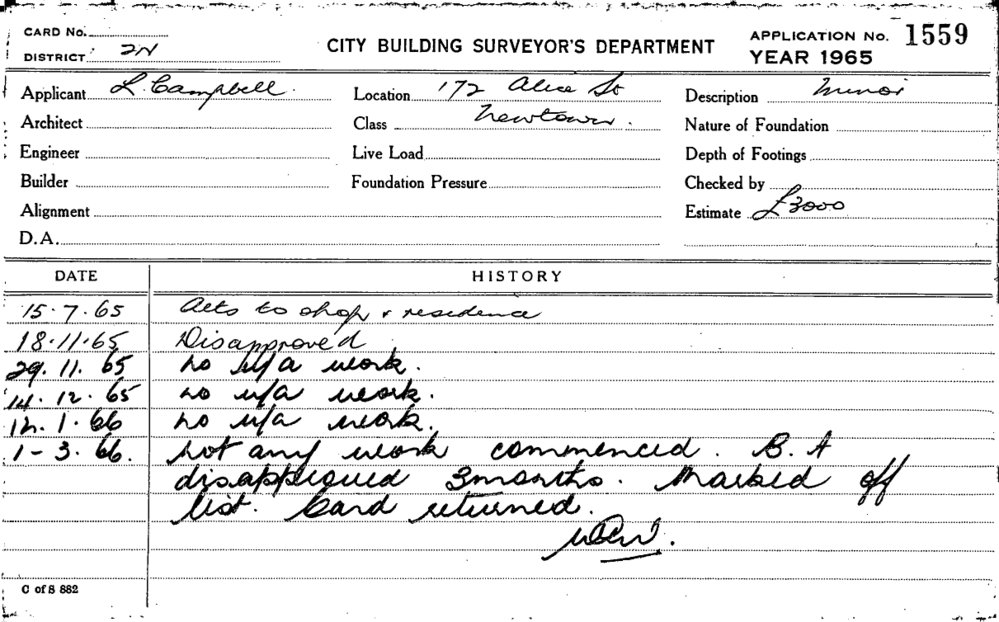 CARD No.
DISTRICT 2N
CITY BUILDING SURVEYOR'S DEPARTMENT
APPLICATION No. 1559
YEAR 1965
Applicant L. Campbell.
Location 172 Alice St
Description Minor
Architect
Class Newtown.
Nature of Foundation
Engineer
Live Load
Depth of Footings
Builder
Foundation Pressure
Checked by
Alignment
Estimate £3000
D.A.
DATE HISTORY
15.7.65 Alts to shop & residence
18.11.65 Disapproved
29.11.65 no u/a work.
14.12.65 no u/a work.
12.1.66 no u/a work.
1-3.66. Not any work commenced. B.A
disapproved 3months. Marked off
list. Card returned.
C of S 882